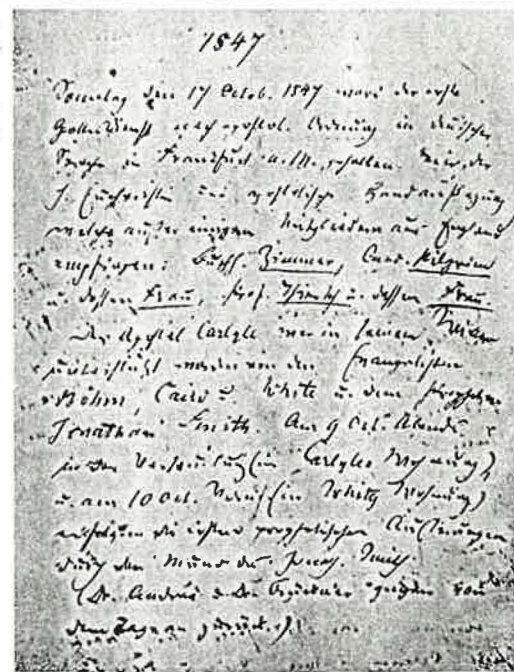 1847
Sonntag den 17 Octob. 1847 ward der erste
Gottesdienst nach apostol. Ordnung in deutscher
Sprache in Frankfurt a. M. gehalten. der
H. Eucharistie und apostolische Handauflegung
welche außer einigen Mitgliedern aus England
empfingen: Buchh. Zimmer, Cand. Pilgrim
u. dessen Frau, Prof. Thiersch u. dessen Frau.
Der Apostel Carlyle war in seinem
unterstützt worden von den Evangelisten
Böhm, Caird u. White u. dem Propheten
Jonathan Smith. Am 9 Oct. Abends
in der Versammlung (in Carlyles Wohnung)
u. am 10 Oct. (in Whites Wohnung)
erfolgten die ersten prophetischen Äußerungen
durch den Mund des Jonath. Smith.
(Dr. Andreä u. Dr. von
dem Tage an zurück.)